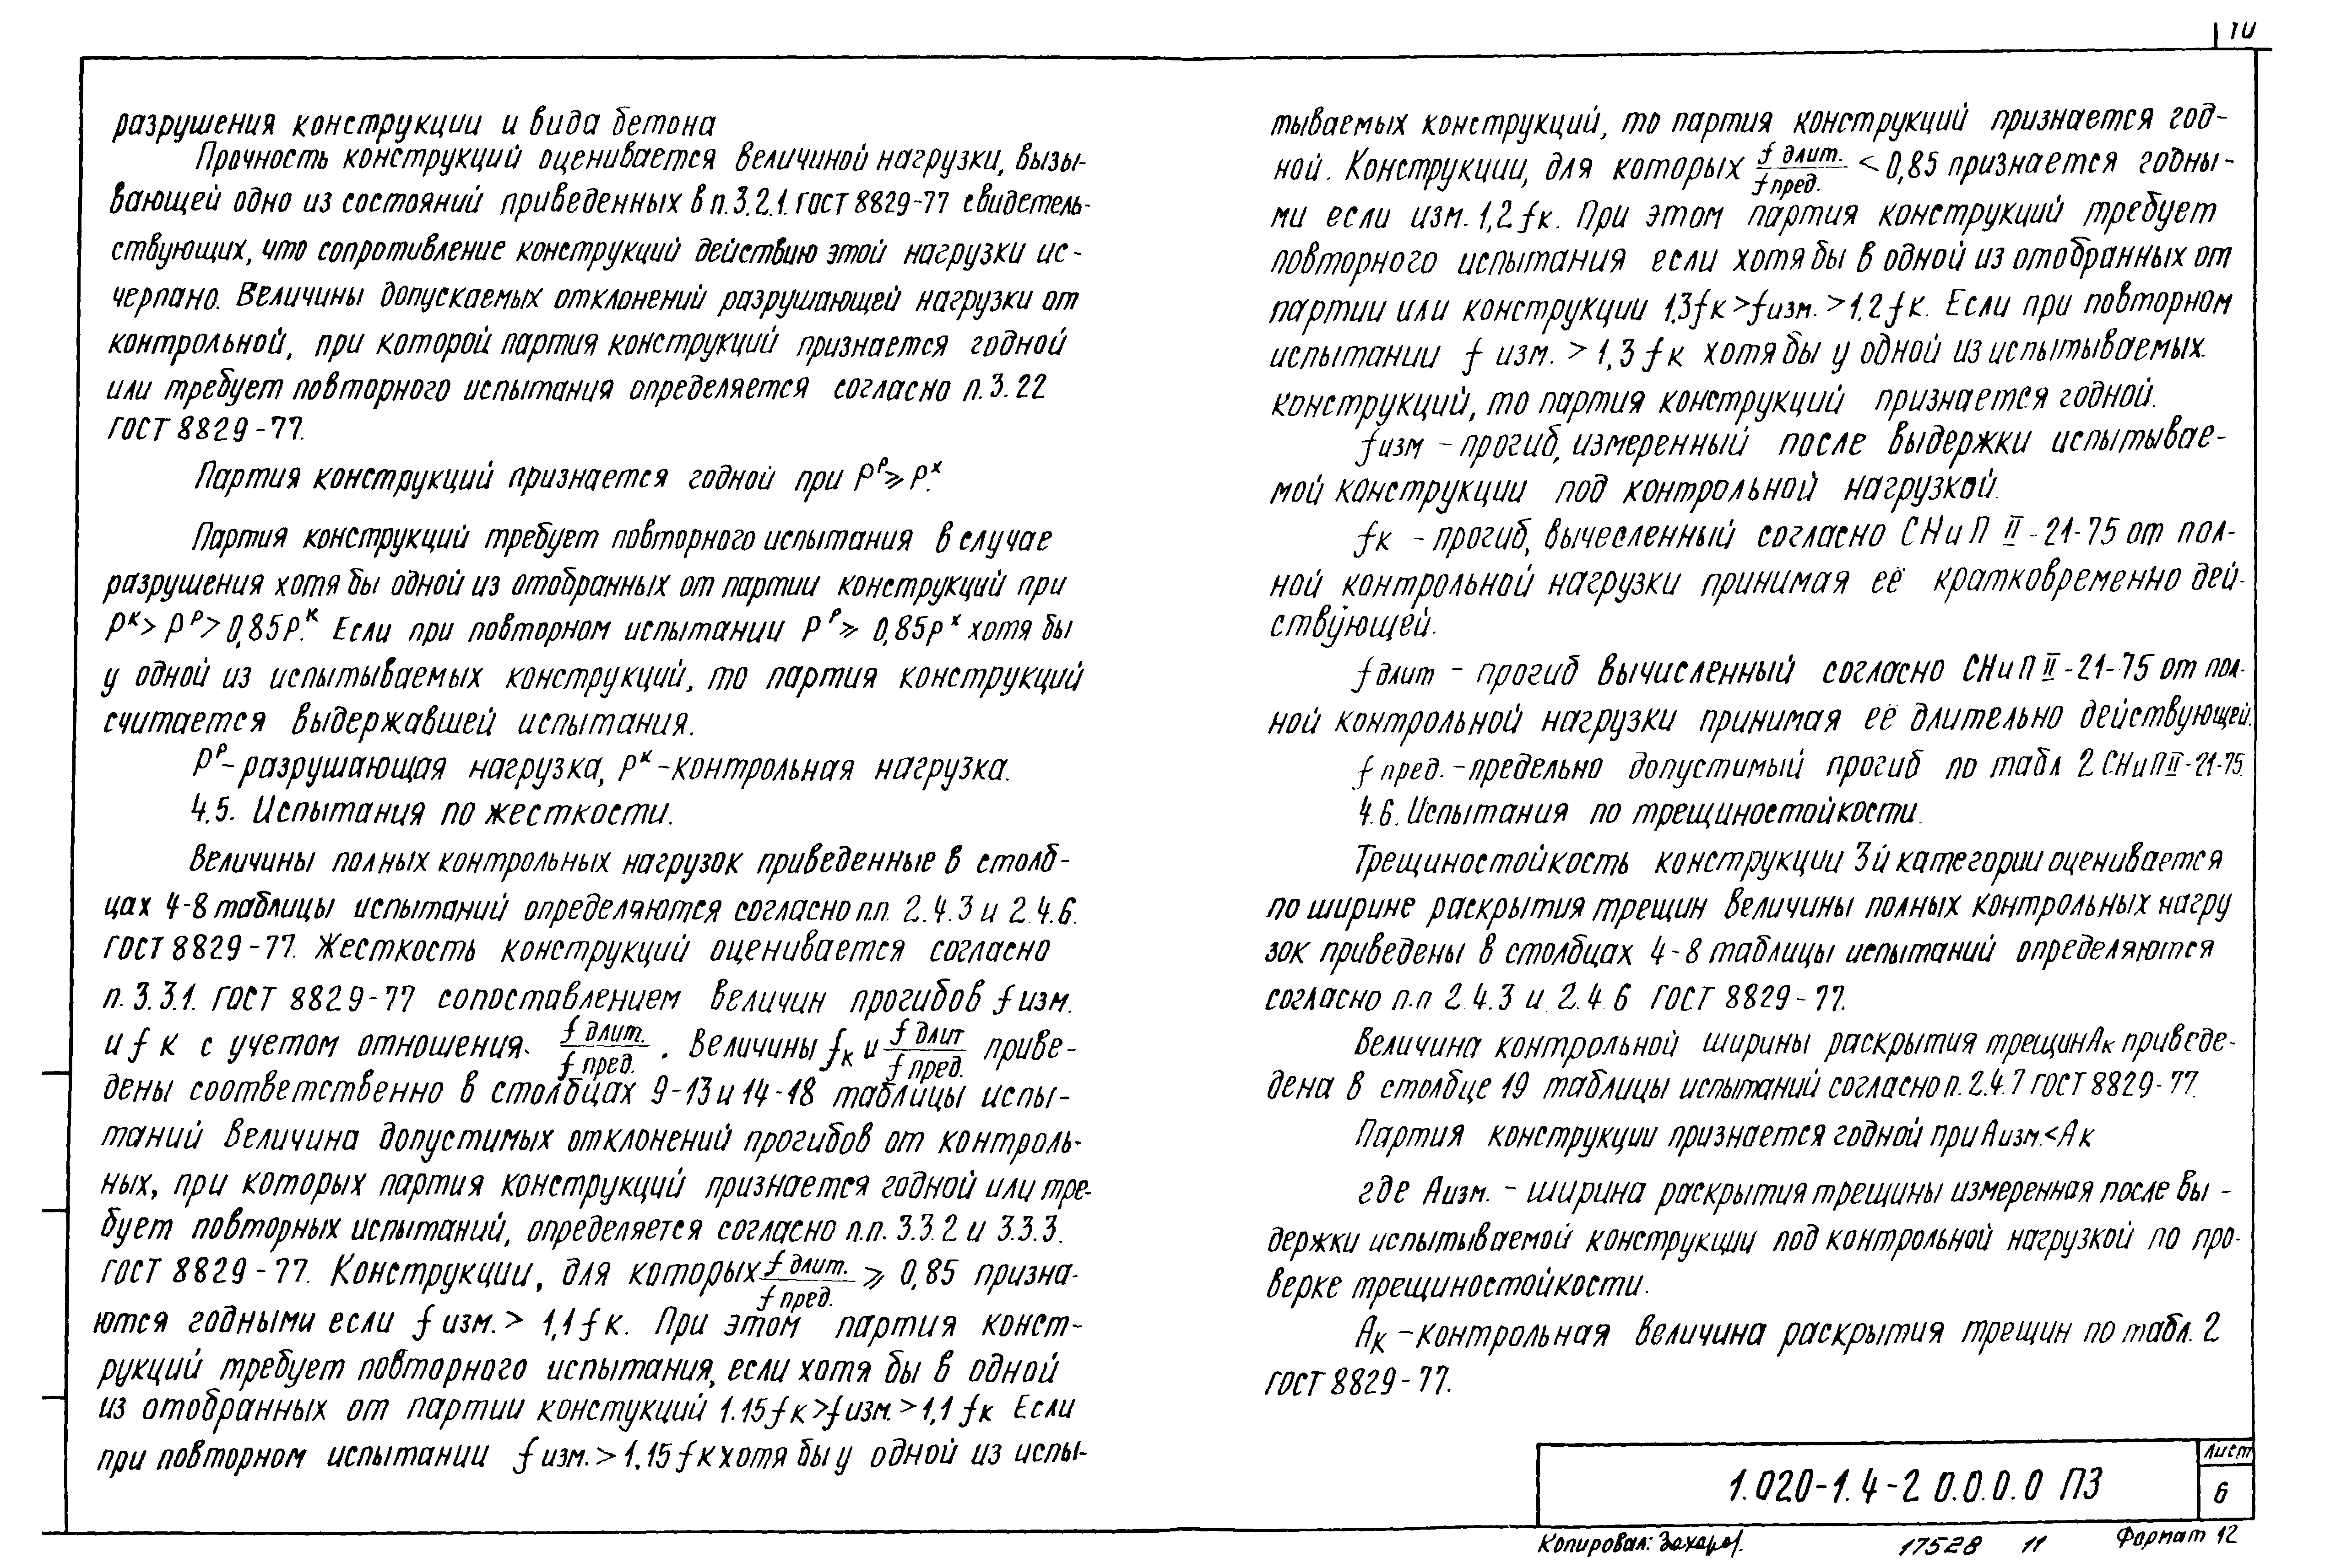 10
разрушения конструкции и вида бетона
Прочность конструкций оценивается величиной нагрузки, вызы-
вающей одно из состояний приведенных в п.3.2.1. ГОСТ 8829-77 свидетель-
ствующих, что сопротивление конструкций действию этой нагрузки ис-
черпано. Величины допускаемых отклонений разрушающей нагрузки от
контрольной, при которой партия конструкций признается годной
или требует повторного испытания определяется согласно п.3.22
ГОСТ 8829-77.
Партия конструкций признается годной при Pᵖ⩾Pᴷ.
Партия конструкций требует повторного испытания в случае
разрушения хотя бы одной из отобранных от партии конструкций при
Pᴷ>Pᵖ>0,85Pᴷ. Если при повторном испытании Pᵖ⩾ 0,85Pᴷ хотя бы
у одной из испытываемых конструкций, то партия конструкций
считается выдержавшей испытания.
Pᵖ-разрушающая нагрузка, Pᴷ-контрольная нагрузка.
4.5. Испытания по жесткости.
Величины полных контрольных нагрузок приведенные в столб-
цах 4-8 таблицы испытаний определяются согласно п.п. 2.4.3 и 2.4.6.
ГОСТ 8829-77. Жесткость конструкций оценивается согласно
п.3.3.1. ГОСТ 8829-77 сопоставлением величин прогибов f изм.
и f к с учетом отношения. f длит./f пред. . Величины fк и f длит/f пред. приве-
дены соответственно в столбцах 9-13 и 14-18 таблицы испы-
таний Величина допустимых отклонений прогибов от контроль-
ных, при которых партия конструкций признается годной или тре-
бует повторных испытаний, определяется согласно п.п. 3.3.2 и 3.3.3.
ГОСТ 8829-77. Конструкции, для которых f длит./f пред. ⩾ 0,85 призна-
ются годными если f изм.> 1,1 f к. При этом партия конст-
рукций требует повторного испытания, если хотя бы в одной
из отобранных от партии констукций 1.15 f к>f изм.>1,1 fк Если
при повторном испытании f изм.>1.15 f к хотя бы у одной из испы-
тываемых конструкций, то партия конструкций признается год-
ной. Конструкции, для которых f длит./f пред. <0,85 признается годны-
ми если изм. 1,2 fк. При этом партия конструкций требует
повторного испытания если хотя бы в одной из отобранных от
партии или конструкции 1,3fк>fизм.>1,2 fк. Если при повторном
испытании f изм. >1,3 f к хотя бы у одной из испытываемых.
конструкций, то партия конструкций признается годной.
fизм - прогиб, измеренный после выдержки испытывае-
мой конструкции под контрольной нагрузкой.
fк - прогиб, вычесленный согласно СНиП II-21-75 от пол-
ной контрольной нагрузки принимая её кратковременно дей-
ствующей.
f длит - прогиб вычисленный согласно СНиП II-21-75 от пол-
ной контрольной нагрузки принимая её длительно действующей.
f пред. -предельно допустимый прогиб по табл 2 СНиП II-21-75
4.6. Испытания по трещиностойкости.
Трещиностойкость конструкции 3й категории оценивается
по ширине раскрытия трещин Величины полных контрольных нагру
зок приведены в столбцах 4-8 таблицы испытаний определяются
согласно п.п 2.4.3 и 2.4.6 ГОСТ 8829-77.
Величина контрольной ширины раскрытия трещин Ак приведе-
дена в столбце 19 таблицы испытаний согласно п.2.4.7 ГОСТ 8829-77.
Партия конструкции признается годной при Аизм.<Ак
где Аизм. - ширина раскрытия трещины измеренная после вы-
держки испытываемой конструкции под контрольной нагрузкой по про-
верке трещиностойкости.
Ак -контрольная величина раскрытия трещин по табл. 2
ГОСТ 8829-77.
1.020-1.4-2 0.0.0.0 ПЗ
Лист
6
Копировал: Захаров.
17528 11
Формат 12